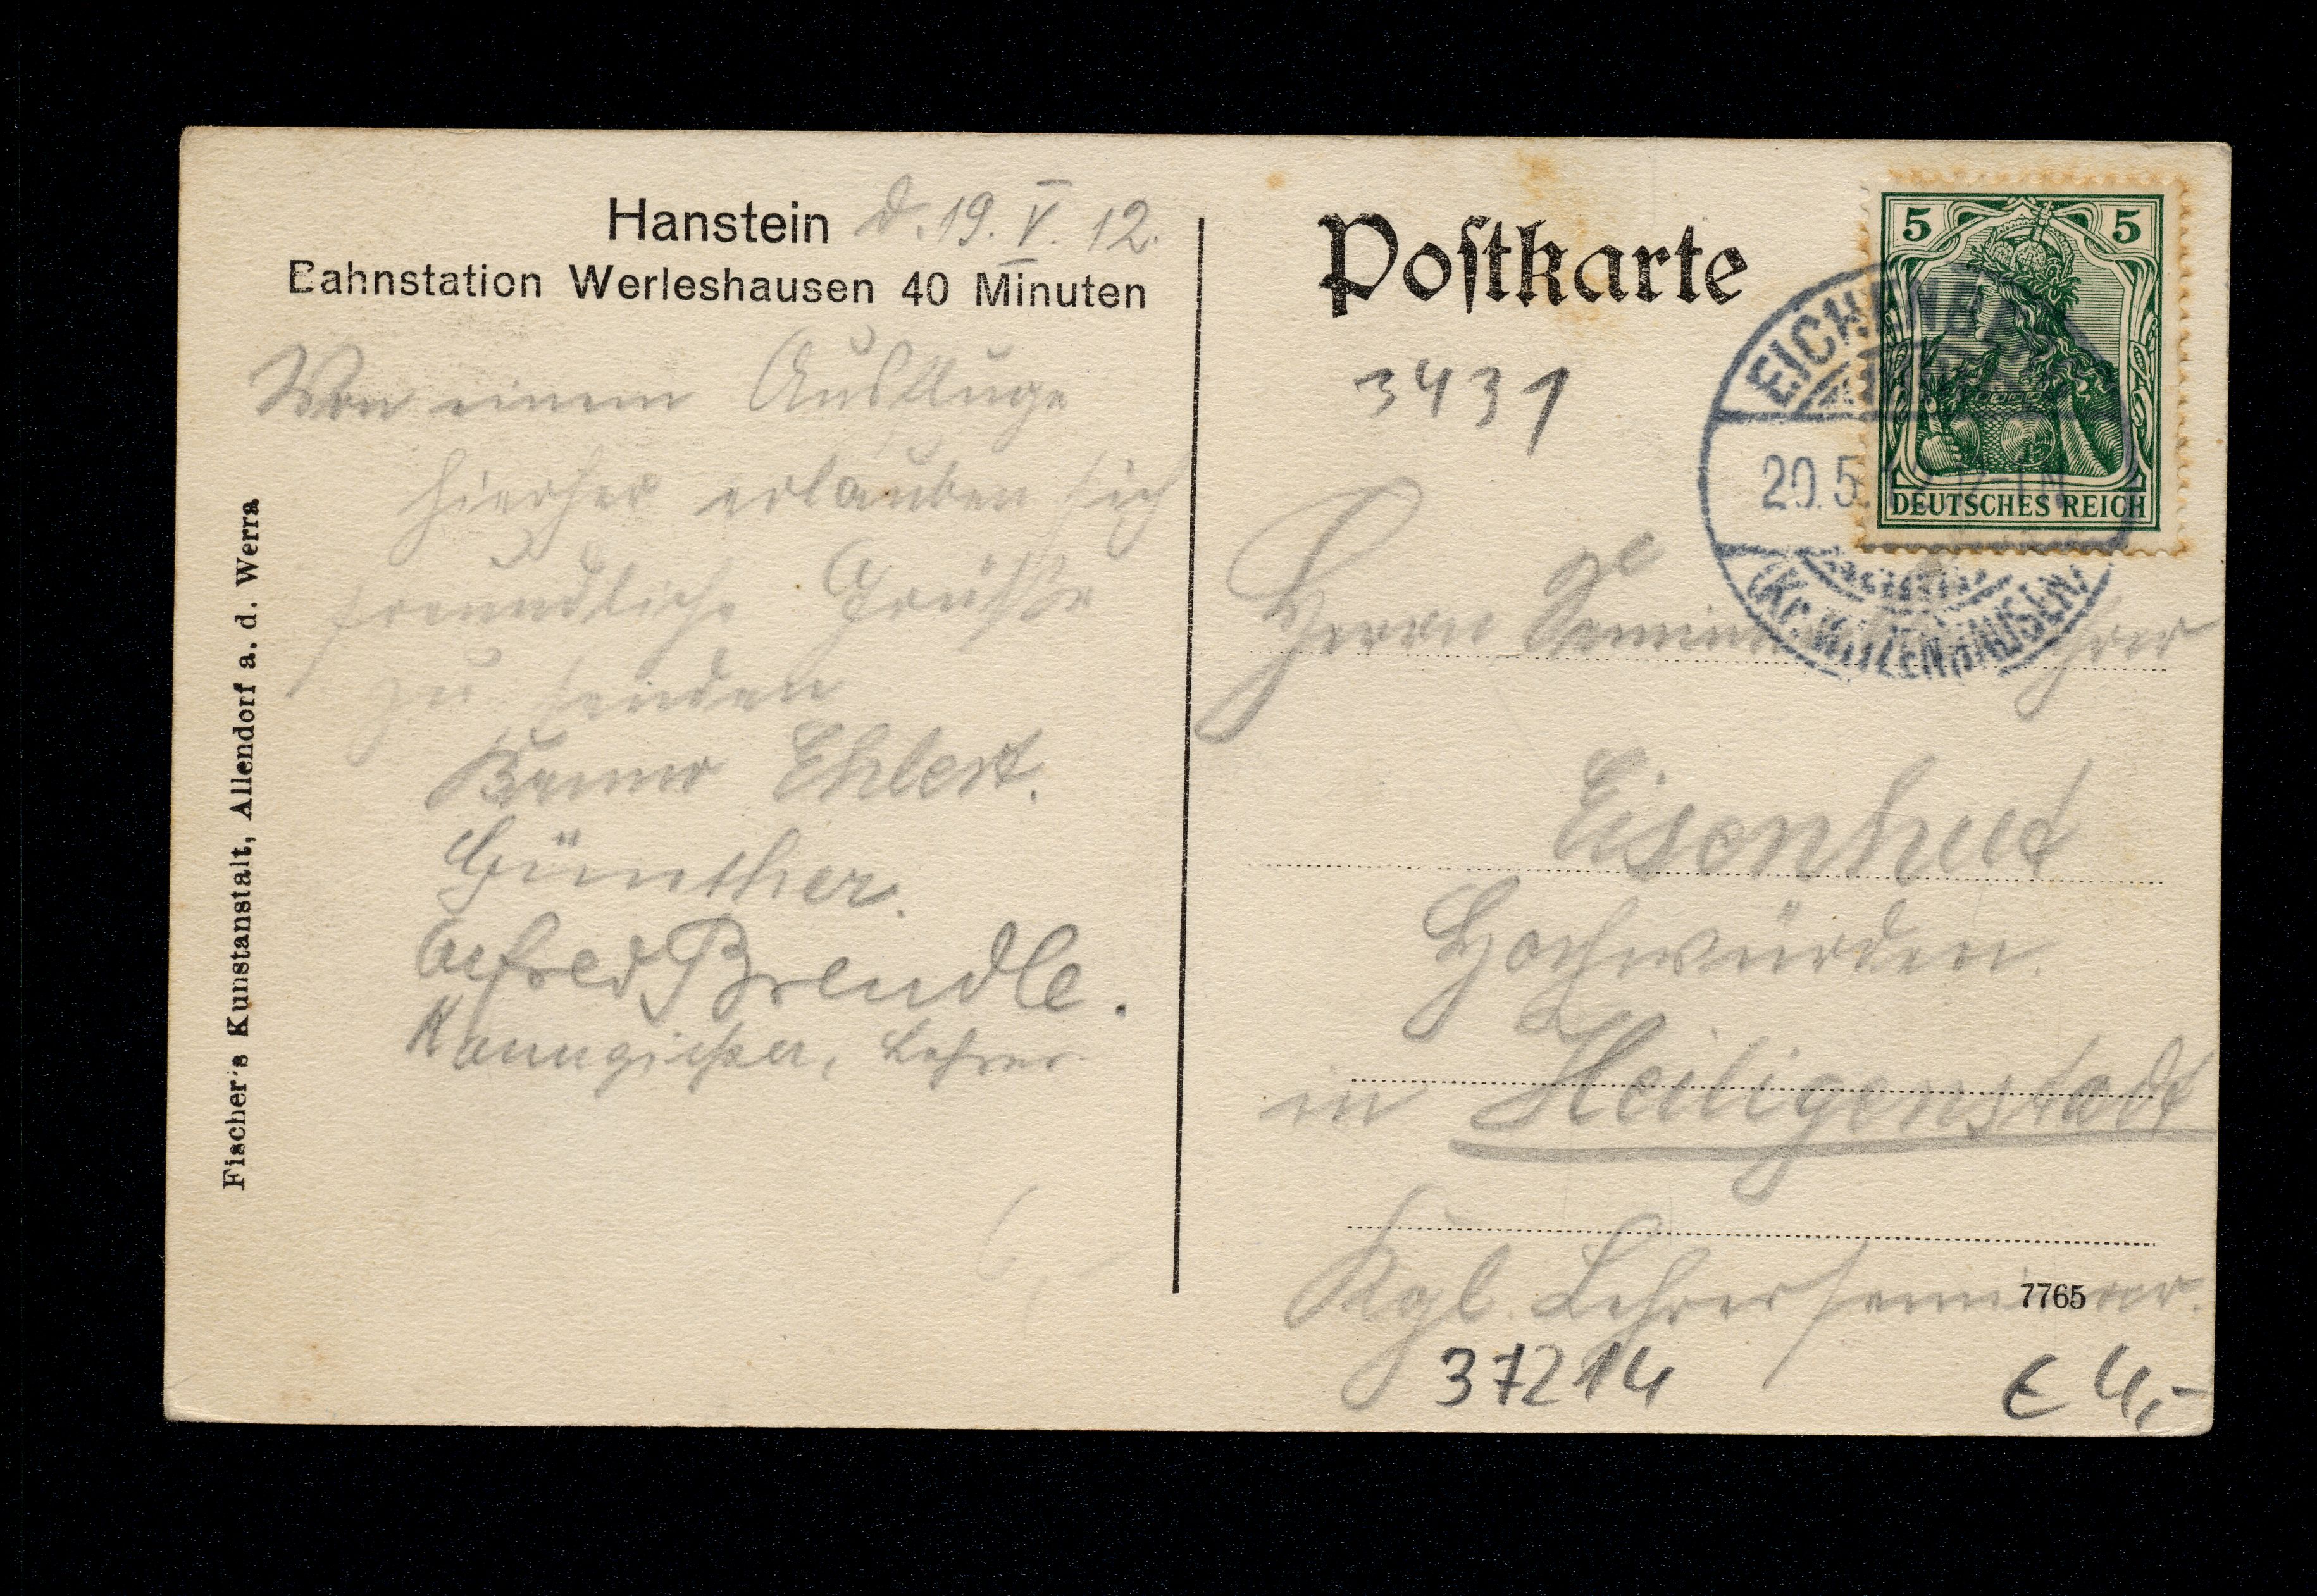 Hanstein d. 19. V. 12.
Bahnstation Werleshausen 40 Minuten
Von einem Ausfluge
hierher erlauben sich
freundliche Grüße
zu senden
Bruno Ehlert.
Günther.
Alfred Brendle.
Kanngießer, Lehrer
Fischer's Kunstanstalt, Allendorf a. d. Werra
Postkarte
5 5
DEUTSCHES REICH
20.5
(Kr. WITZENHAUSEN)
3431
Herrn
Eisenhut
Hochwürden.
in Heiligenstadt
Kgl. Lehrerseminar.
7765
37214
€ 4,-